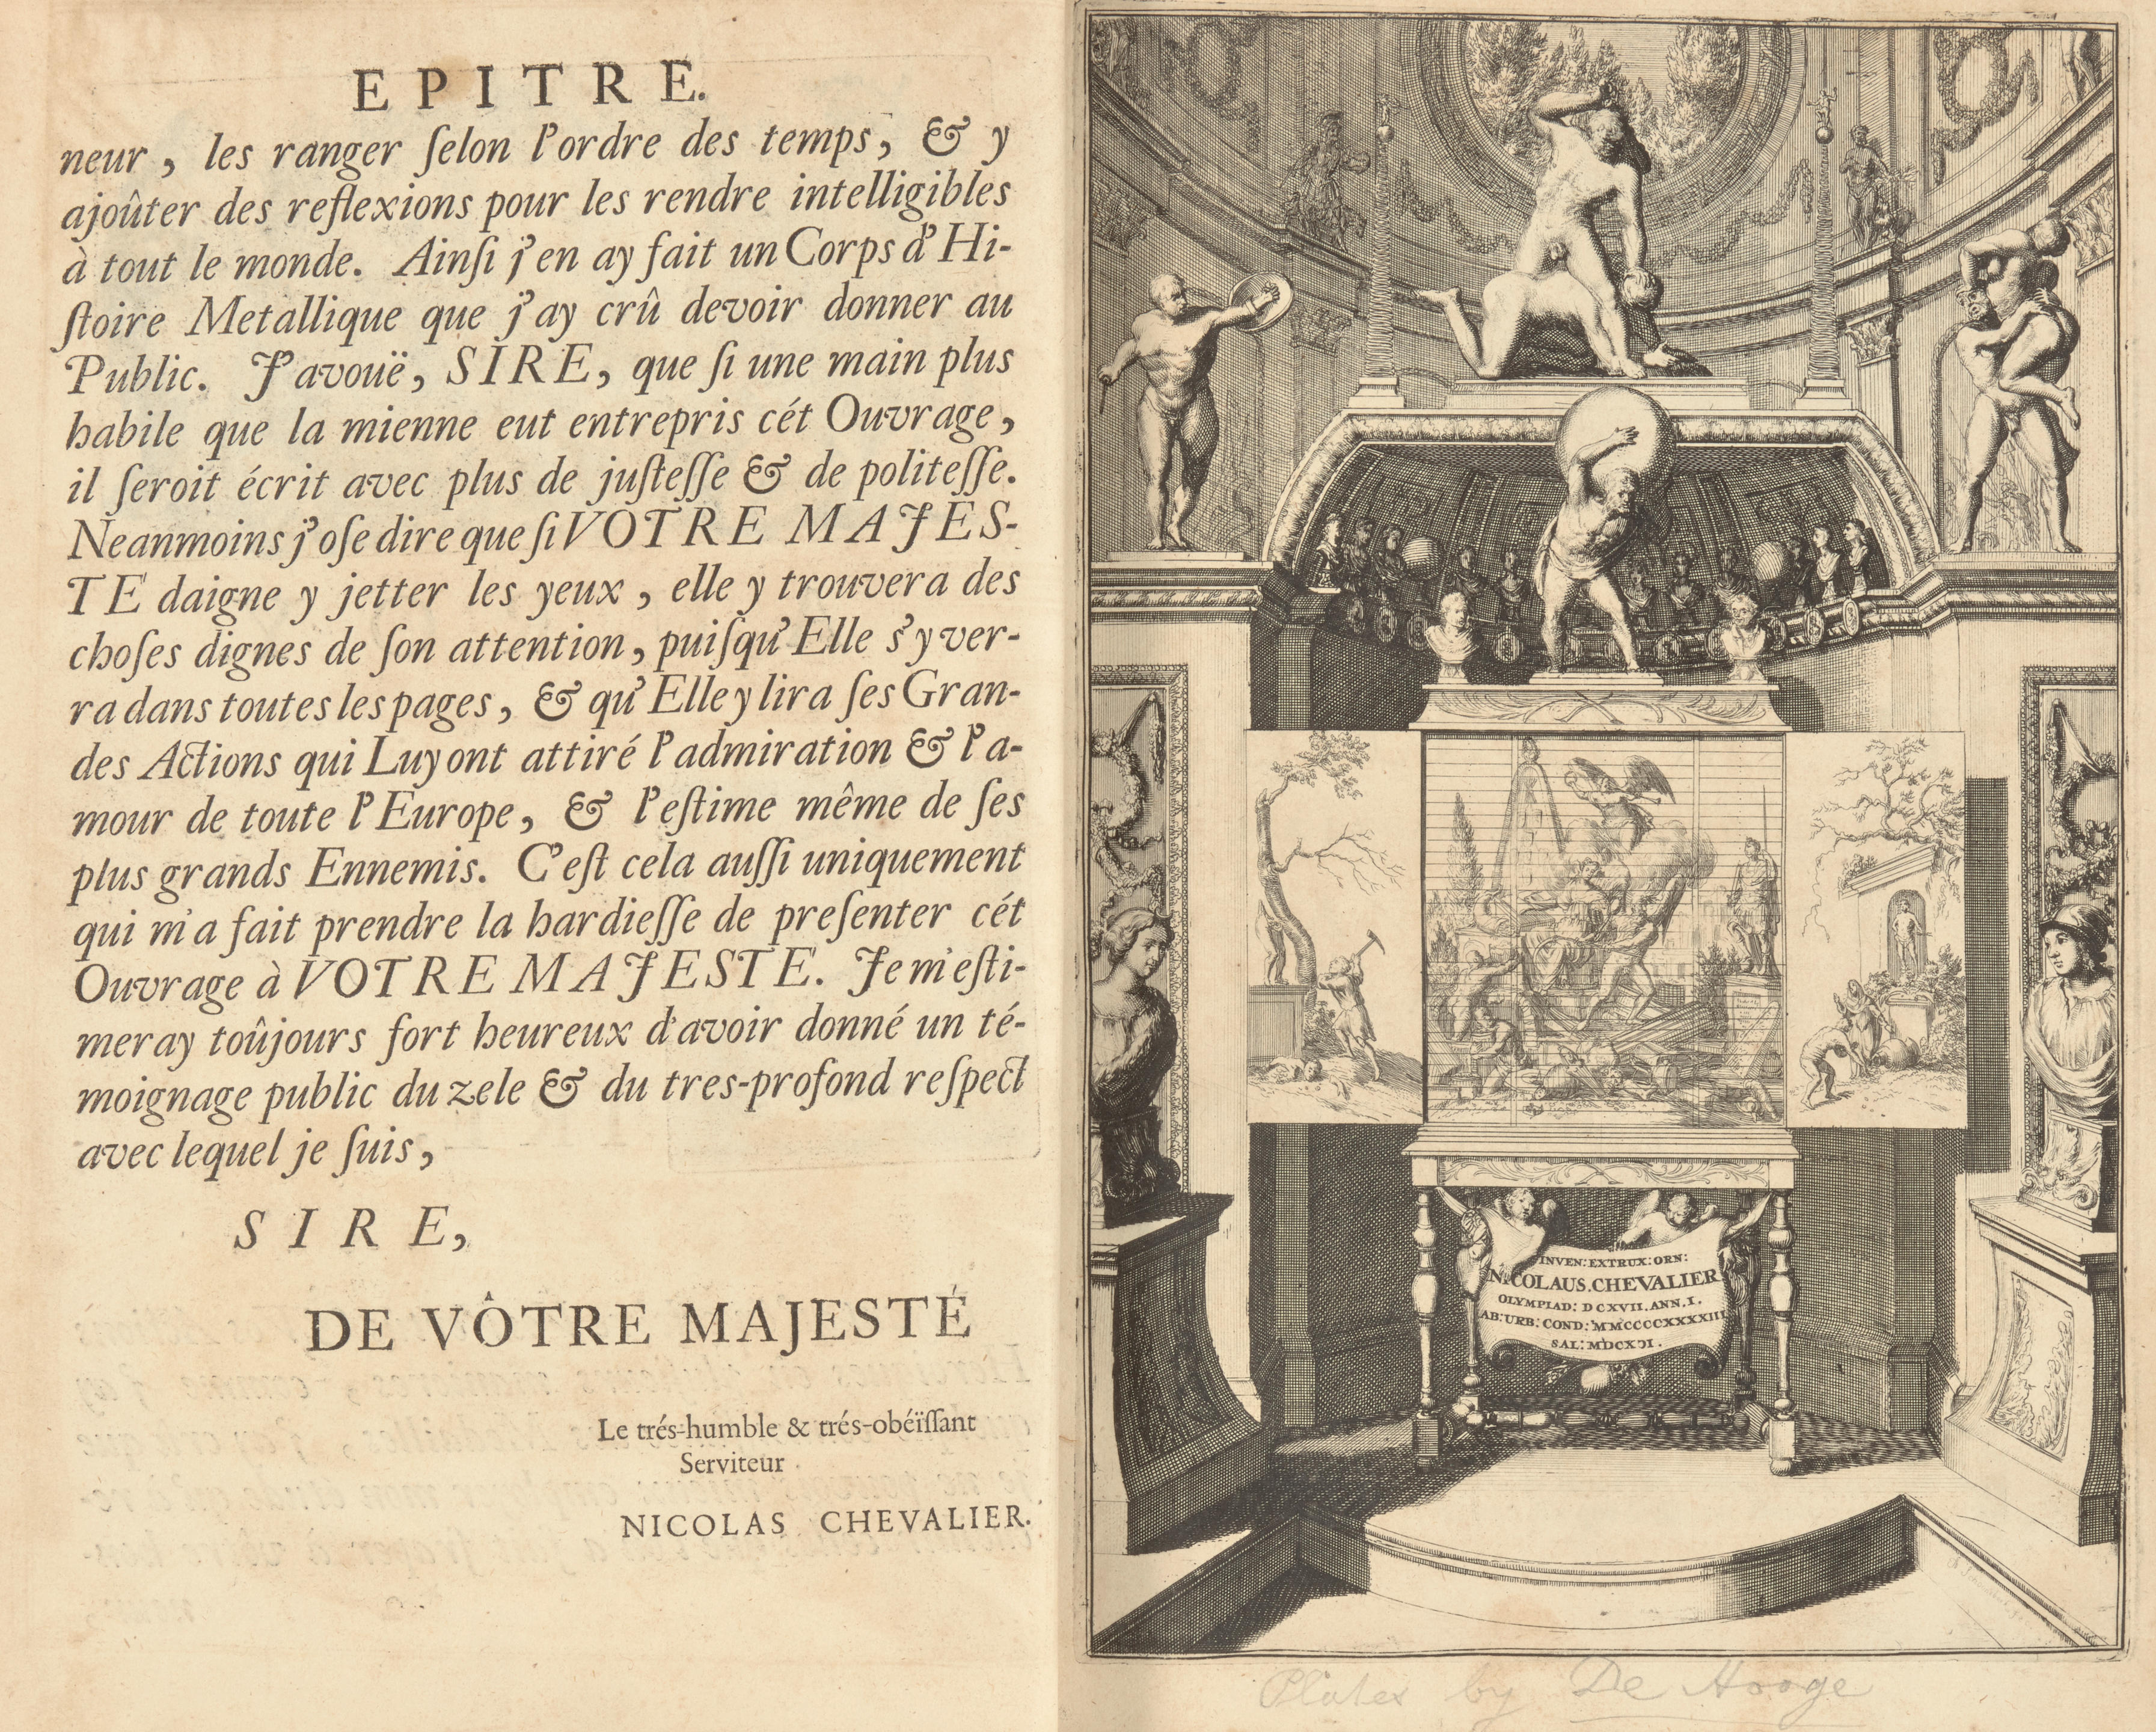 EPITRE.
neur, les ranger ſelon l'ordre des temps, & y
ajoûter des reflexions pour les rendre intelligibles
à tout le monde. Ainſi j'en ay fait un Corps d'Hi-
ſtoire Metallique que j'ay crû devoir donner au
Public. J'avouë, SIRE, que ſi une main plus
habile que la mienne eut entrepris cét Ouvrage,
il ſeroit écrit avec plus de juſteſſe & de politeſſe.
Neanmoins j'oſe dire que ſi VOTRE MAJES-
TE daigne y jetter les yeux, elle y trouvera des
choſes dignes de ſon attention, puiſqu'Elle s'y ver-
ra dans toutes les pages, & qu'Elle y lira ſes Gran-
des Actions qui Luy ont attiré l'admiration & l'a-
mour de toute l'Europe, & l'eſtime même de ſes
plus grands Ennemis. C'eſt cela auſſi uniquement
qui m'a fait prendre la hardieſſe de preſenter cét
Ouvrage à VOTRE MAJESTE. Je m'eſti-
meray toûjours fort heureux d'avoir donné un té-
moignage public du zele & du tres-profond reſpect
avec lequel je ſuis,
SIRE,
DE VÔTRE MAJESTÉ
Le trés-humble & trés-obéïſſant
Serviteur
NICOLAS CHEVALIER.
INVEN: EXTRUX: ORN:
NICOLAUS. CHEVALIER
OLYMPIAD: DCXVII. ANN. I.
AB: URB: COND: MMCCCCXXXXIII
SAL: MDCXCI.
Plates by De Hooge